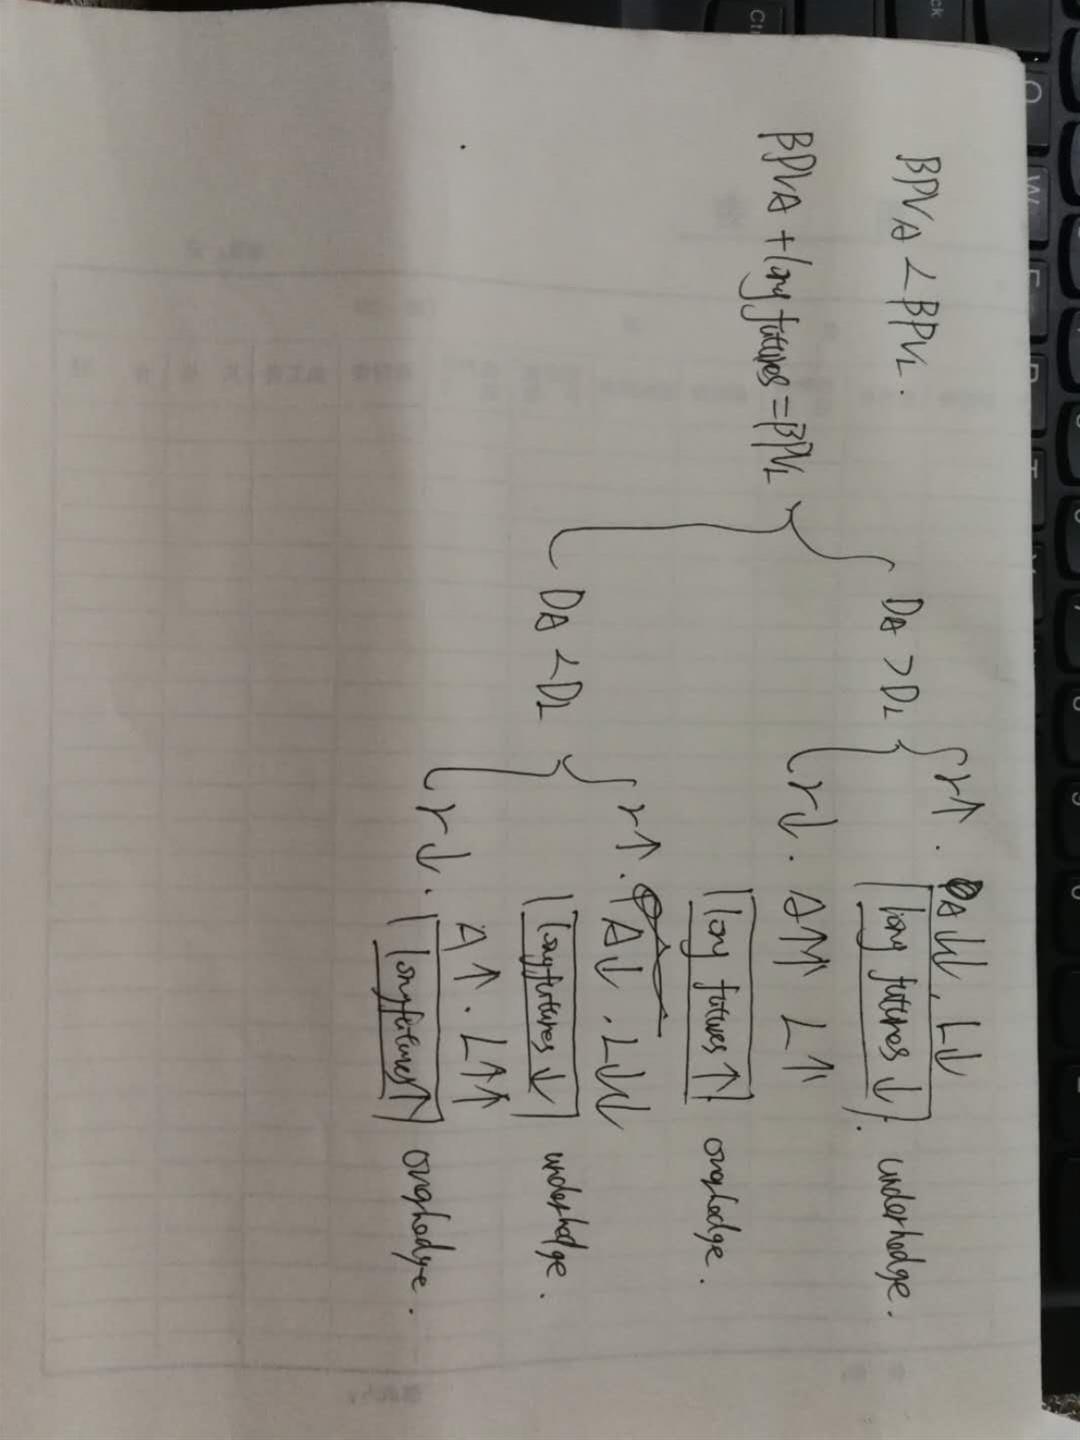 BPVA < BPVL.
BPVA + long futures = BPVL
DA > DL
r↑. A↓↓, L↓
long futures ↓ underhedge.
r↓. A↑↑ L↑
long futures ↑ overhedge.
DA < DL
r↑. A↓. L↓↓
long futures ↓ underhedge.
r↓. A↑. L↑↑
long futures ↑ overhedge.
Ctrl
Q
W
E
R
T